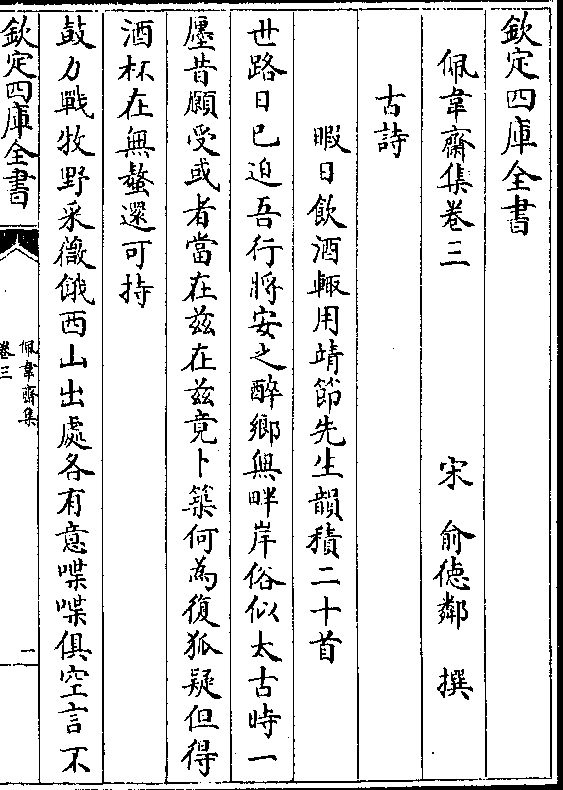 欽定四庫全書
佩韋齋集卷三
宋 俞德鄰 撰
古詩
暇日飲酒輒用靖節先生韻積二十首
世路日已迫吾行將安之醉鄉無畔岸俗似太古時一
廛昔願受或者當在茲在茲竟卜築何為復狐疑但得
酒杯在無螯還可持
鼓刀戰牧野采薇餓西山出處各有意喋喋俱空言不
欽定四庫全書
佩韋齋集
卷三
一